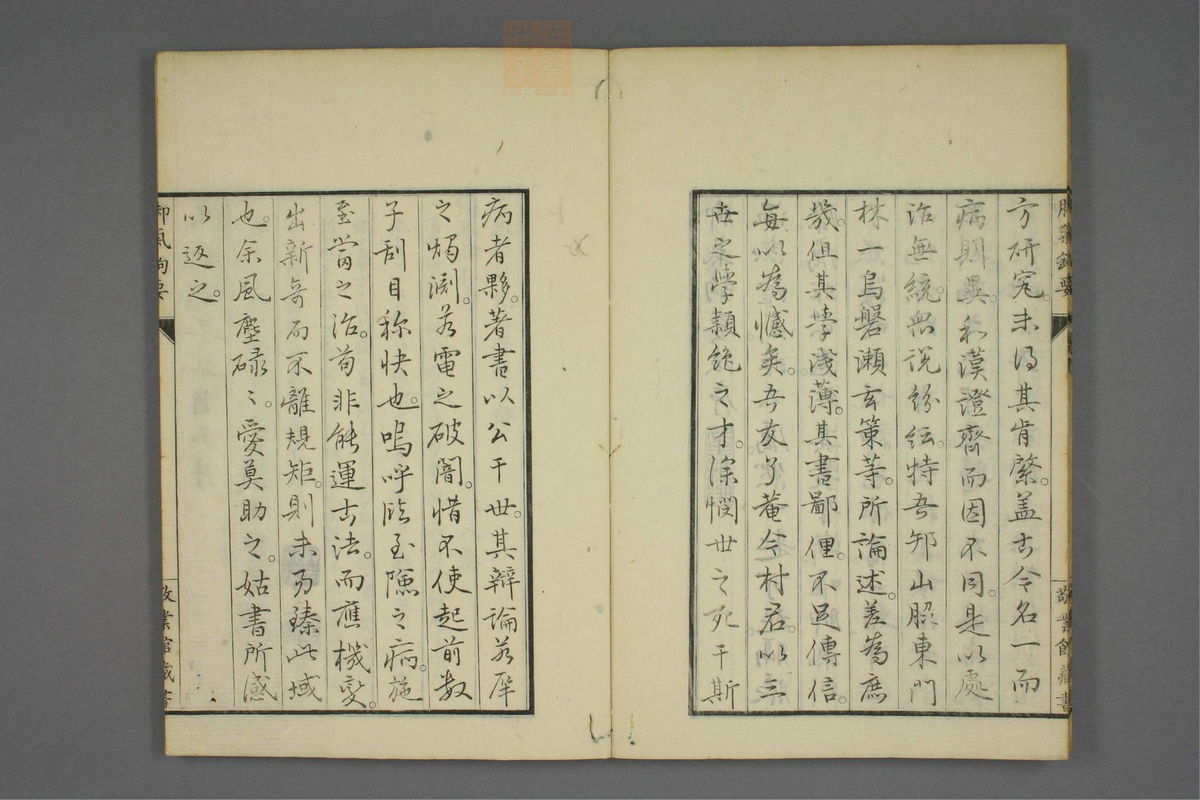 方研究。未得其肯綮。盖古今名一而
病則異。和漢證齊而因不同。是以處
治無統。眾説紛紜。特吾邦山脇東門
林一烏磐瀬玄策等。所論述。差為庶
幾。但其學淺薄。其書鄙俚。不足傳信。
每以為憾矣。吾友了菴今村君。以三
世之學。穎絶之才。深憫世之死于斯
病者夥。著書以公于世。其辯論若犀
之燭淵。若電之破闇。惜不使起前數
子刮目称快也。嗚呼臨至險之病。施
至當之治。苟非能運古法。而應機變。
出新奇而不離規矩。則未易臻此域
也。余風塵碌〻。愛莫助之。姑書所感
以返之。
敬業館藏書